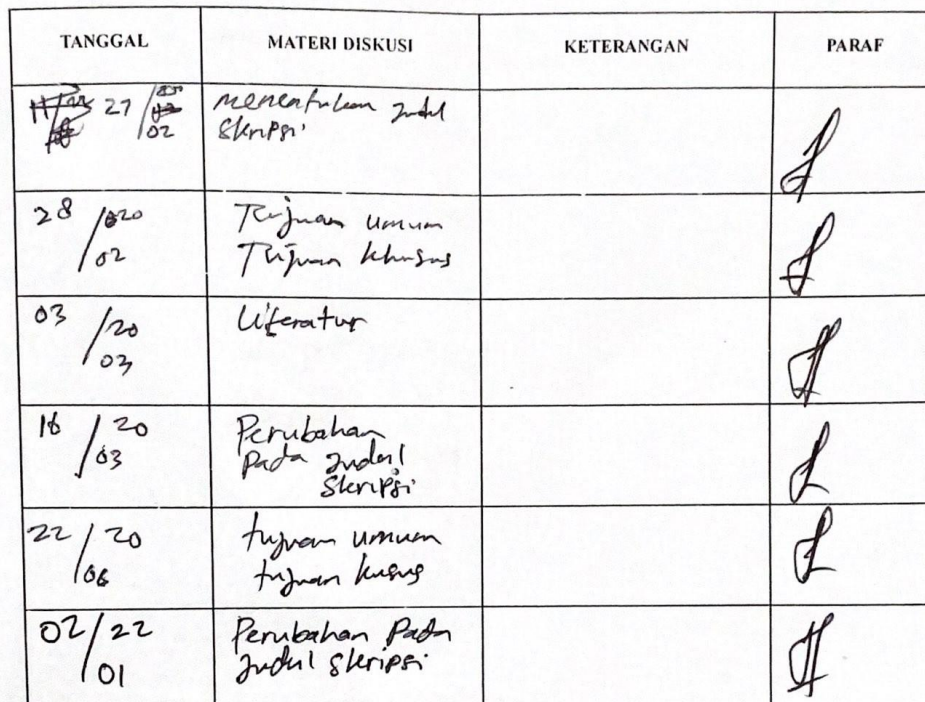 TANGGAL MATERI DISKUSI KETERANGAN PARAF
27 / 02 menentukan Judul
Skripsi
28 /020 Tujuan umum
/02 Tujuan khusus
03 /20 Literatur
/03
16 / 20 Perubahan
/03 Pada Judul
Skripsi
22 / 20 tujuan umum
/06 tujuan kusus
02/22 Perubahan Pada
/01 Judul Skripsi